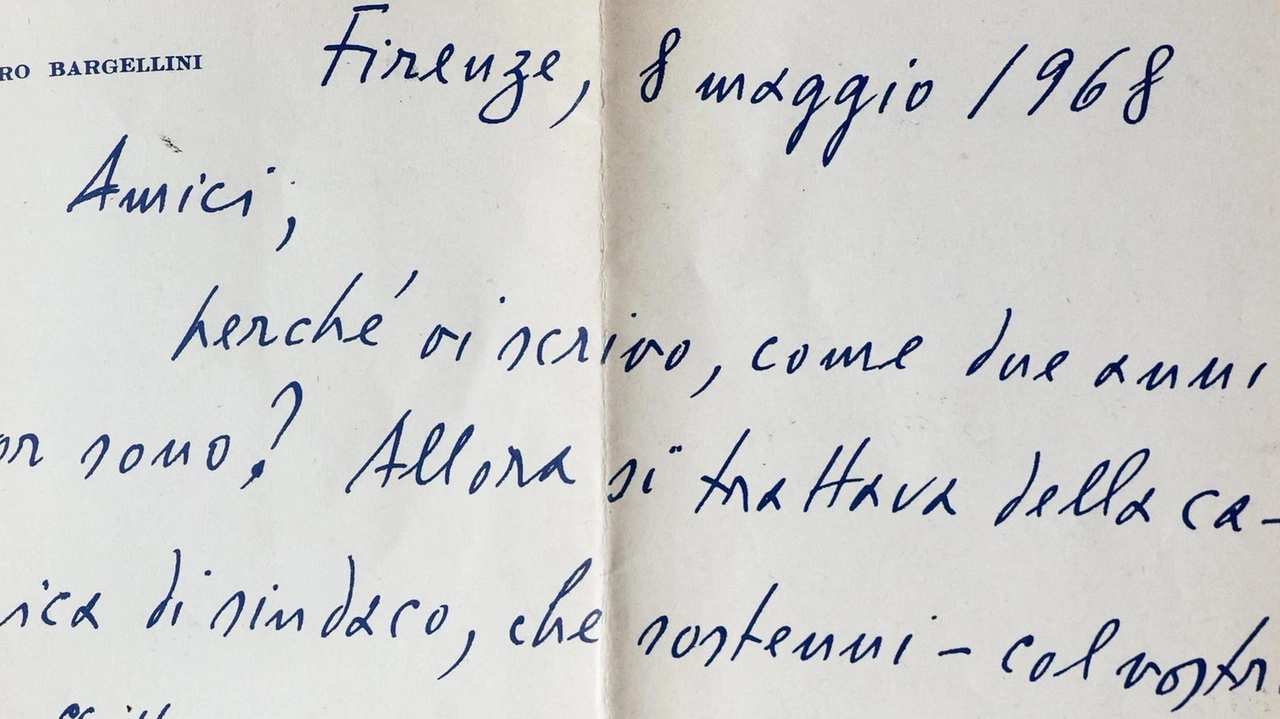 RO BARGELLINI
Firenze, 8 maggio 1968
Amici,
perché vi scrivo, come due anni
or sono? Allora si trattava della ca-
rica di sindaco, che sostenni - col vostr